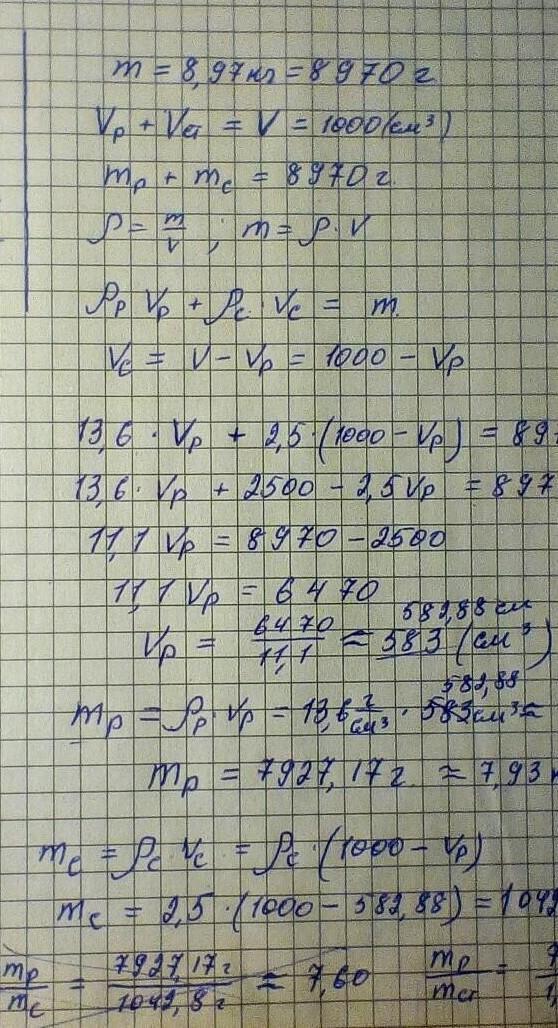 m = 8,97 кг = 8970 г
Vр + Vст = V = 1000 (см³)
mр + mс = 8970 г.
ρ = m/V ; m = ρ · V
ρр Vр + ρс · Vс = m.
Vс = V − Vр = 1000 − Vр
13,6 · Vр + 2,5 · (1000 − Vр) = 897
13,6 · Vр + 2500 − 2,5 Vр = 897
11,1 Vр = 8970 − 2500
11,1 Vр = 6470
582,88 см
Vр = 6470/11,1 ≈ 583 (см³)
582,88
mр = ρр · Vр = 13,6 г/см³ · 583 см³ =
mр = 7927,17 г ≈ 7,93
mс = ρс Vс = ρс · (1000 − Vр)
mс = 2,5 · (1000 − 582,88) = 1042
mр/mс = 7927,17 г/1042,8 г ≈ 7,60 mр/mст = 7/1,